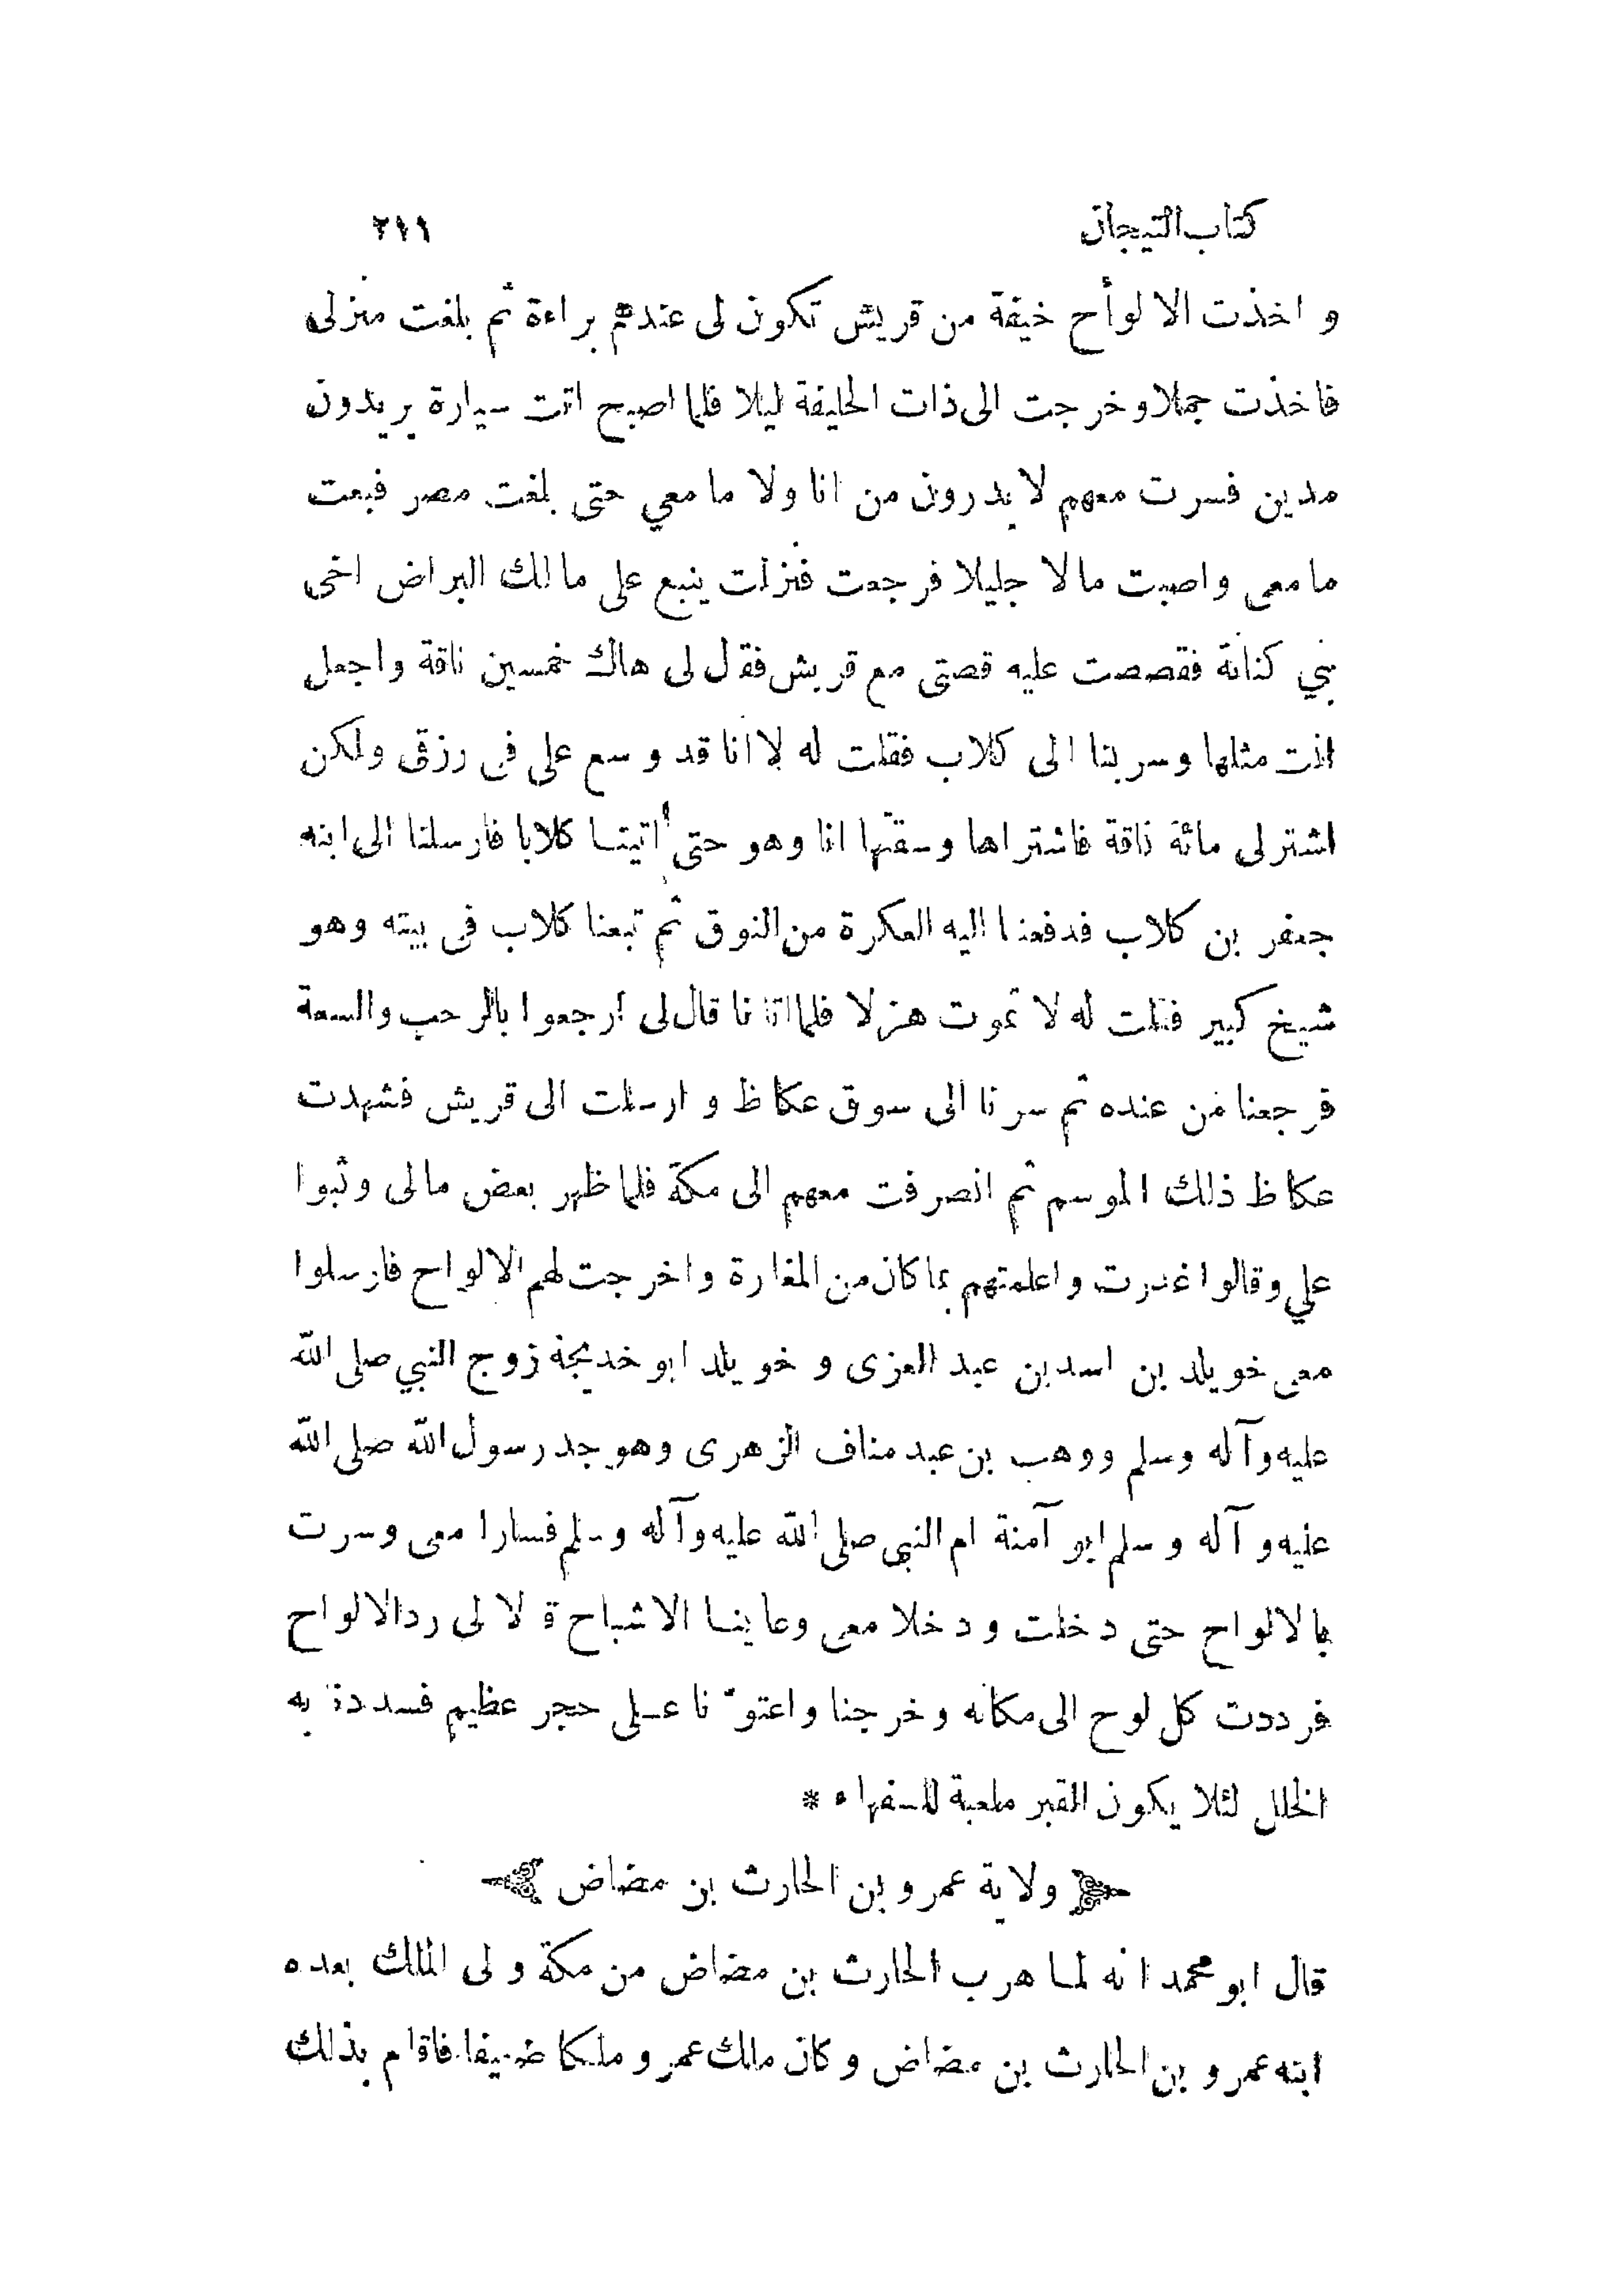 كتاب التيجان ٢١١
و اخذت الالواح خيفة من قريش تكون لى عندهم براءة ثم بلغت منزلى
فاخذت جملا وخرجت الى ذات الحليفة ليلا فلما اصبح اتت سيارة يريدون
مدين فسرت معهم لا يدرون من انا ولا ما معي حتى بلغت مصر فبعت
ما معى واصبت مالا جليلا فرجعت فنزلت ينبع على مالك البراض اخى
بني كنانة فقصصت عليه قصتى مع قريش فقل لى هاك خمسين ناقة واجعل
انت مثلها وسر بنا الى كلاب فقلت له لا انا قد وسع على فى رزقى ولكن
اشتر لى مائة ناقة فاشتراها وسقتها انا وهو حتى أتينا كلابا فارسلنا الى ابنه
جعفر بن كلاب فدفعنا اليه العكرة من النوق ثم تبعنا كلاب فى بيته وهو
شيخ كبير فقلت له لا تموت هزلا فلما اتانا قال لى ارجعوا بالرحب والسعة
فرجعنا من عنده ثم سرنا الى سوق عكاظ و ارسلت الى قريش فشهدت
عكاظ ذلك الموسم ثم انصرفت معهم الى مكة فلما ظهر بعض مالى وثبوا
علي وقالوا غدرت واعلمتهم بما كان من المغارة واخرجت لهم الالواح فارسلوا
معى خويلد بن اسد بن عبد العزى و خويلد ابو خديجة زوج النبي صلى الله
عليه وآله وسلم ووهب بن عبد مناف الزهرى وهو جد رسول الله صلى الله
عليه و آله وسلم ابو آمنة ام النبى صلى الله عليه وآله وسلم فسارا معى وسرت
بالالواح حتى دخلت و دخلا معى وعاينا الاشباح قالا لى رد الالواح
فرددت كل لوح الى مكانه وخرجنا واعتونا على حجر عظيم فسددنا به
الخلل لئلا يكون القبر ملعبة للسفهاء *
ولاية عمرو بن الحارث بن مضاض
قال ابو محمد انه لما هرب الحارث بن مضاض من مكة ولى الملك بعده
ابنه عمرو بن الحارث بن مضاض وكان مالك عمرو ملكا ضعيفا فاقام بذلك